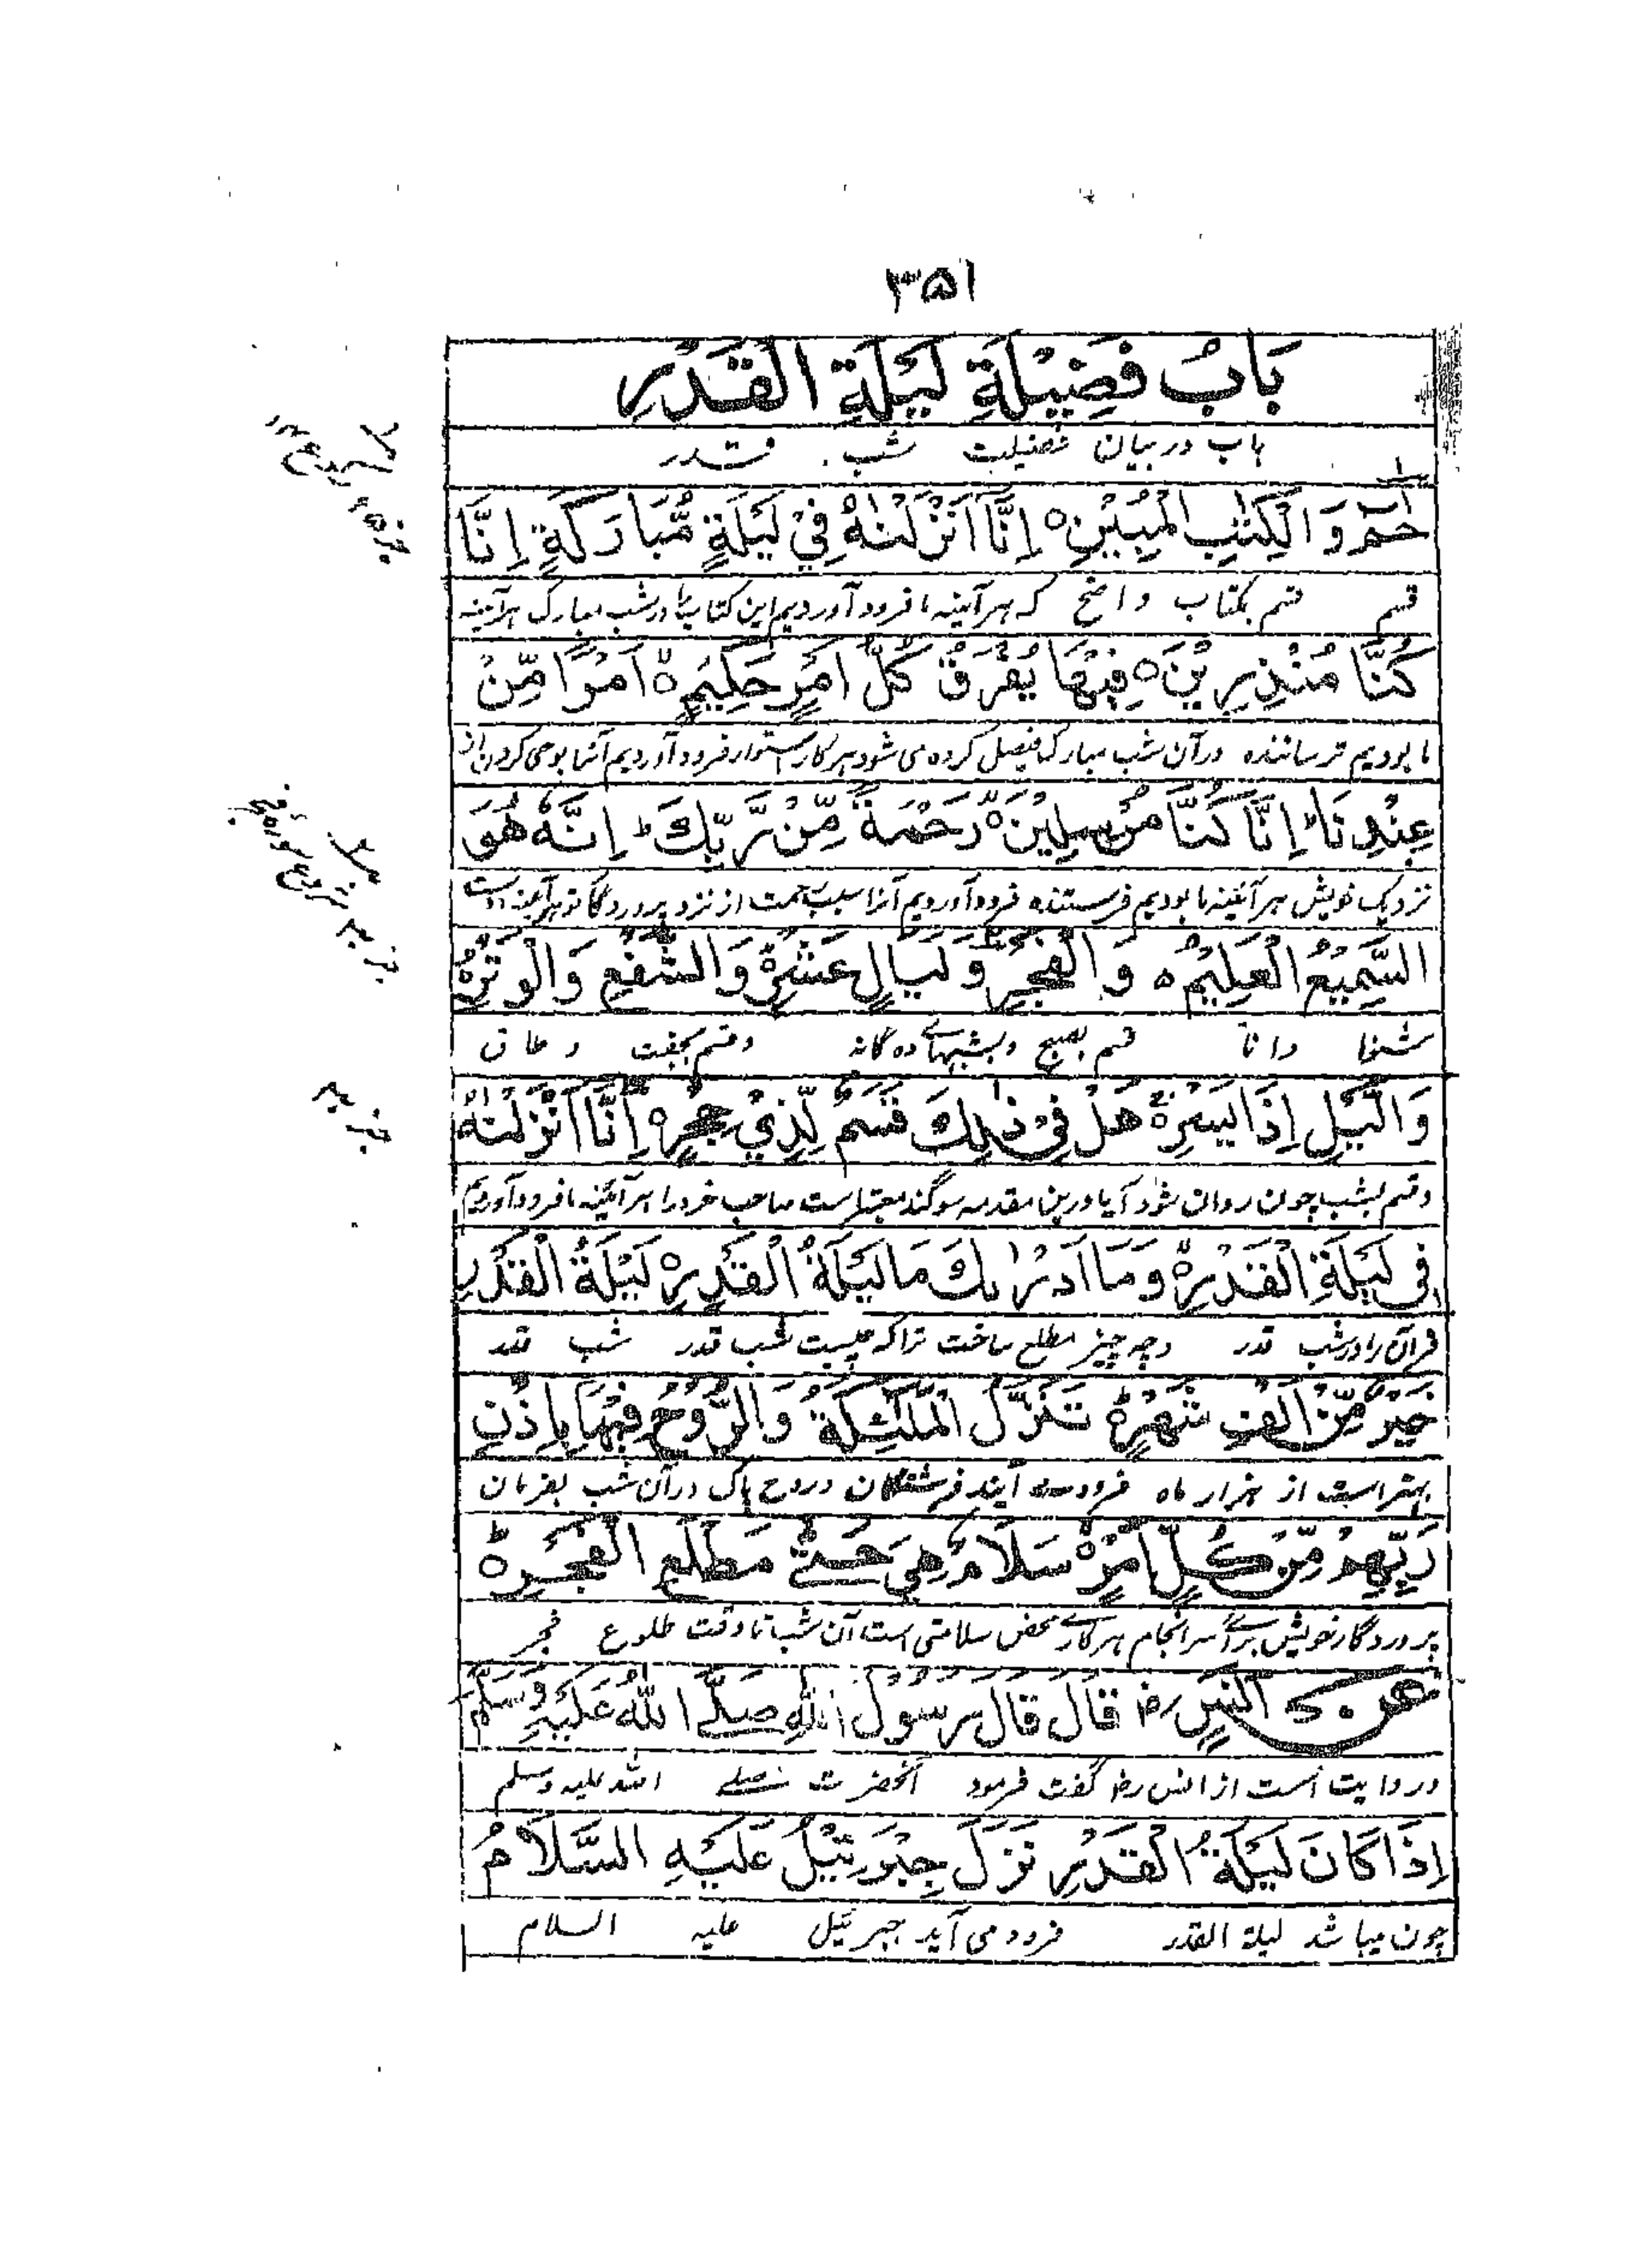 ۳۵۱
بَابُ فَضِيْلَةِ لَيْلَةِ الْقَدْرِ
باب در بیان فضیلت شب قدر
حٰمٓ وَالْكِتٰبِ الْمُبِيْنِ ۝ اِنَّا اَنْزَلْنٰهُ فِيْ لَيْلَةٍ مُّبَارَكَةٍ اِنَّا
قسم قسم بکتاب واضح که هرآئینه ما فرود آوردیم این کتاب را در شب مبارک هرآئینه
كُنَّا مُنْذِرِيْنَ ۝ فِيْهَا يُفْرَقُ كُلُّ اَمْرٍ حَكِيْمٍ ۝ اَمْرًا مِّنْ
ما بودیم ترساننده در آن شب مبارک فیصل کرده می شود هر کار استوار فرود آوردیم آنرا بوحی کردن از
عِنْدِنَا ط اِنَّا كُنَّا مُرْسِلِيْنَ ۝ رَحْمَةً مِّنْ رَّبِّكَ ط اِنَّهٗ هُوَ
نزدیک خویش هرآئینه ما بودیم فرستنده فرود آوردیم آنرا بسبب رحمت از نزد پروردگار تو هرآئینه اوست
السَّمِيْعُ الْعَلِيْمُ ۝ وَالْفَجْرِ وَلَيَالٍ عَشْرٍ ۝ وَالشَّفْعِ وَالْوَتْرِ ۝
شنوا دانا قسم بصبح و بشبهاے ده گانه و قسم بجفت و طاق
وَالَّيْلِ اِذَا يَسْرِ ۝ هَلْ فِيْ ذٰلِكَ قَسَمٌ لِّذِيْ حِجْرٍ ۝ اِنَّا اَنْزَلْنٰهُ
و قسم بشب چون روان شود آیا درین مقدمه سوگند معتبر است صاحب خرد را هرآئینه ما فرود آوردیم
فِي لَيْلَةِ الْقَدْرِ ۝ وَمَا اَدْرٰىكَ مَا لَيْلَةُ الْقَدْرِ ۝ لَيْلَةُ الْقَدْرِ
قرآن را در شب قدر و چه چیز مطلع ساخت ترا که چیست شب قدر شب قدر
خَيْرٌ مِّنْ اَلْفِ شَهْرٍ ۝ تَنَزَّلُ الْمَلٰٓئِكَةُ وَالرُّوْحُ فِيْهَا بِاِذْنِ
بهتر است از هزار ماه فرود می آیند فرشتگان و روح پاک در آن شب بفرمان
رَبِّهِمْ مِّنْ كُلِّ اَمْرٍ ۝ سَلَامٌ هِيَ حَتّٰى مَطْلَعِ الْفَجْرِ ۝
پروردگار خویش براے سرانجام هر کارے محض سلامتی است آن شب تا وقت طلوع فجر
عَنْ اَنَسٍ رض قَالَ قَالَ رَسُوْلُ اللّٰهِ صَلَّے اللّٰهُ عَلَيْهِ وَسَلَّمَ
و روایت است از انس رض گفت فرمود آنحضرت صلے اللہ علیہ وسلم
اِذَا كَانَ لَيْلَةُ الْقَدْرِ نَزَلَ جِبْرَئِيْلُ عَلَيْهِ السَّلَامُ
چون میباشد لیلة القدر فرود می آید جبرئیل علیه السلام